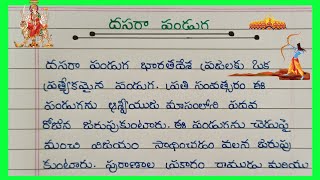 దసరా పండుగ
దసరా పండుగ భారతదేశ ప్రజలకు ఒక
ప్రత్యేకమైన పండుగ. ప్రతి సంవత్సరం ఈ
పండుగను ఆశ్వీయుజ మాసంలోని పదవ
రోజున జరుపుకుంటారు. ఈ పండుగను చెడుపై
మంచి విజయం సాధించడం వలన జరుపు
కుంటారు. పురాణాల ప్రకారం రాముడు మరియు